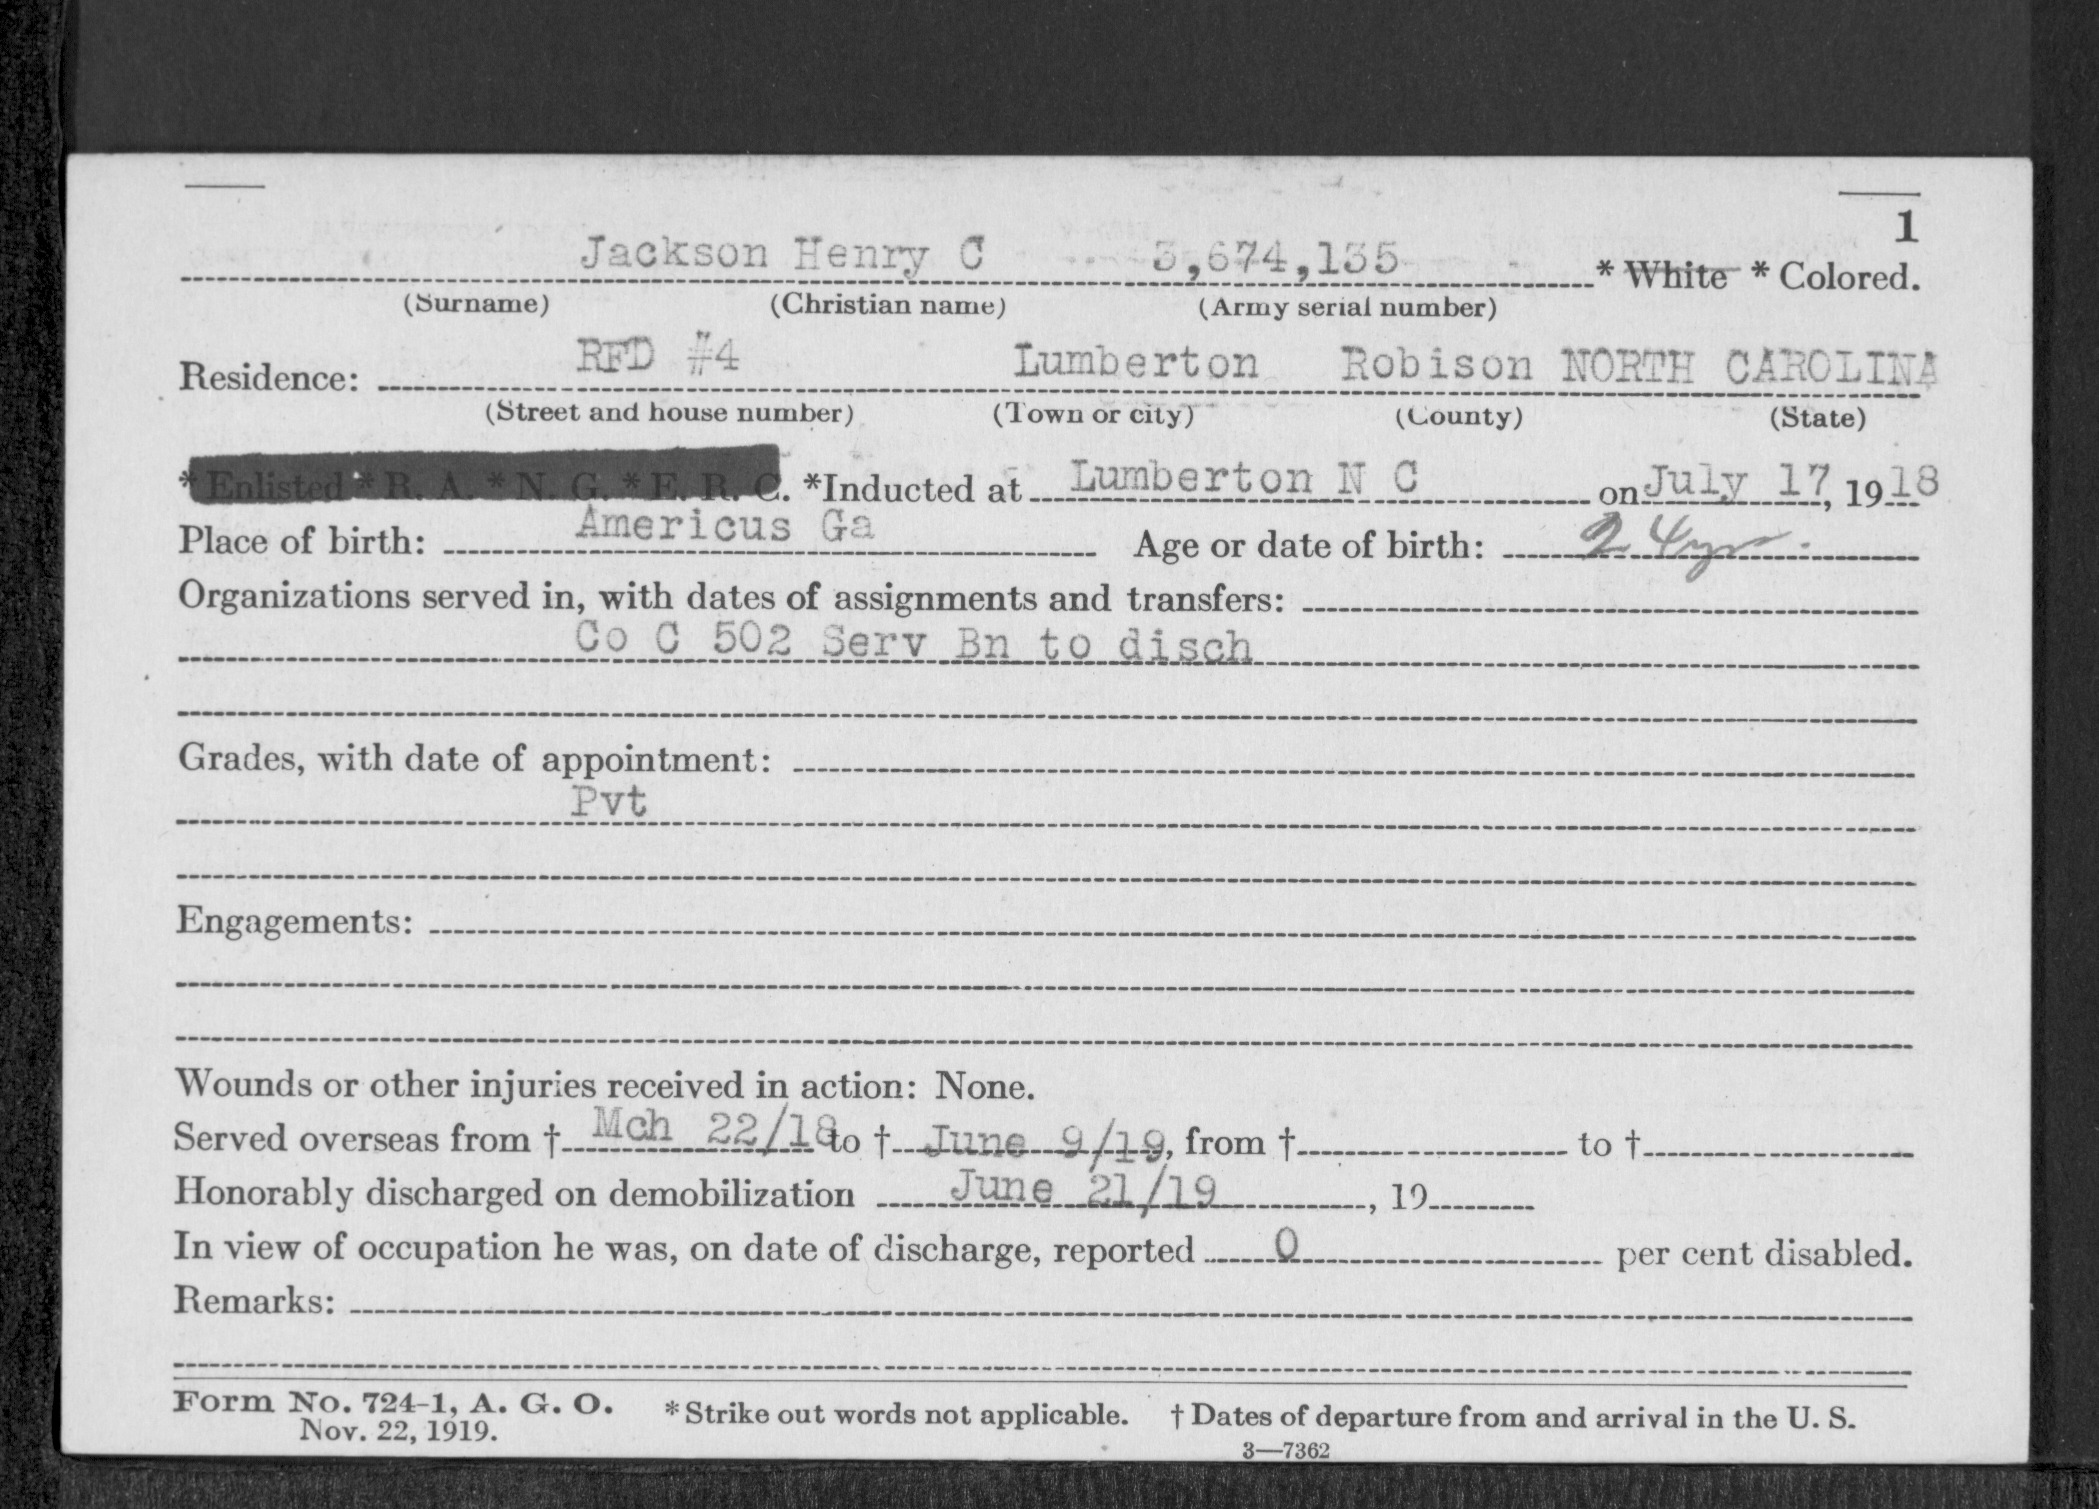 1
Jackson Henry C 3,674,135 * White * Colored.
(Surname) (Christian name) (Army serial number)
Residence: RFD #4 Lumberton Robison NORTH CAROLINA
(Street and house number) (Town or city) (County) (State)
* Enlisted * R. A. * N. G. * E. R. C. *Inducted at Lumberton N C on July 17, 1918
Place of birth: Americus Ga Age or date of birth: 24yrs.
Organizations served in, with dates of assignments and transfers:
Co C 502 Serv Bn to disch
Grades, with date of appointment:
Pvt
Engagements:
Wounds or other injuries received in action: None.
Served overseas from † Mch 22/18 to † June 9/19, from † to †
Honorably discharged on demobilization June 21/19, 19
In view of occupation he was, on date of discharge, reported 0 per cent disabled.
Remarks:
Form No. 724-1, A. G. O. * Strike out words not applicable. † Dates of departure from and arrival in the U. S.
Nov. 22, 1919.
3—7362